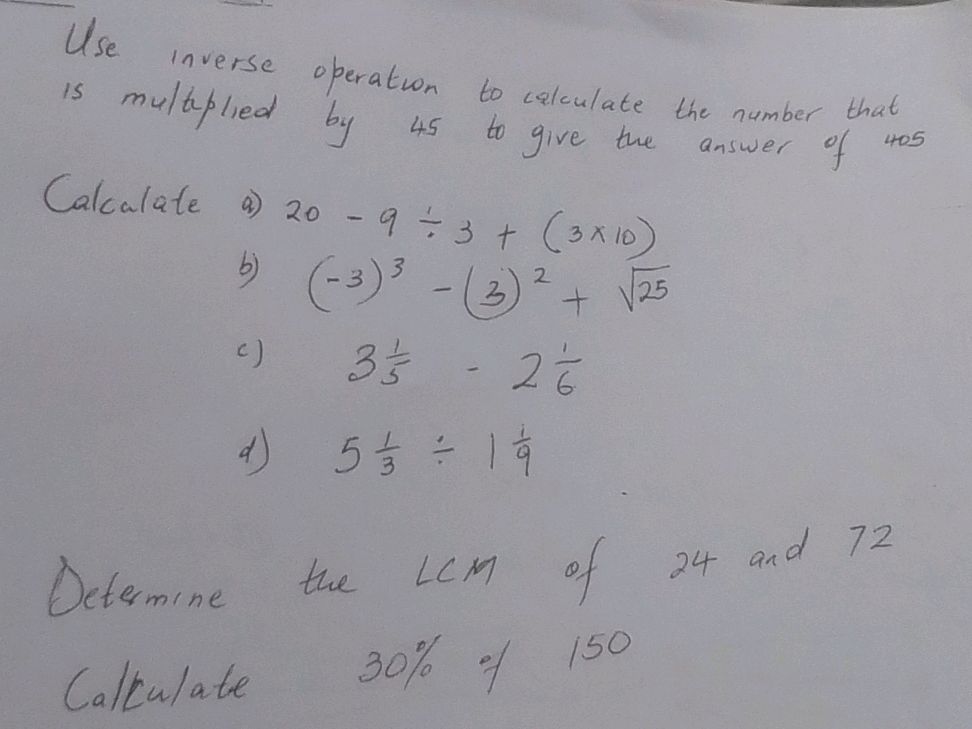 Use inverse operation to calculate the number that
is multiplied by 45 to give the answer of 405
Calculate a) 20 - 9 ÷ 3 + (3 × 10)
b) (-3)³ - (3)² + √25
c) 3 1/5 - 2 1/6
d) 5 1/3 ÷ 1 1/9
Determine the LCM of 24 and 72
Calculate 30% of 150